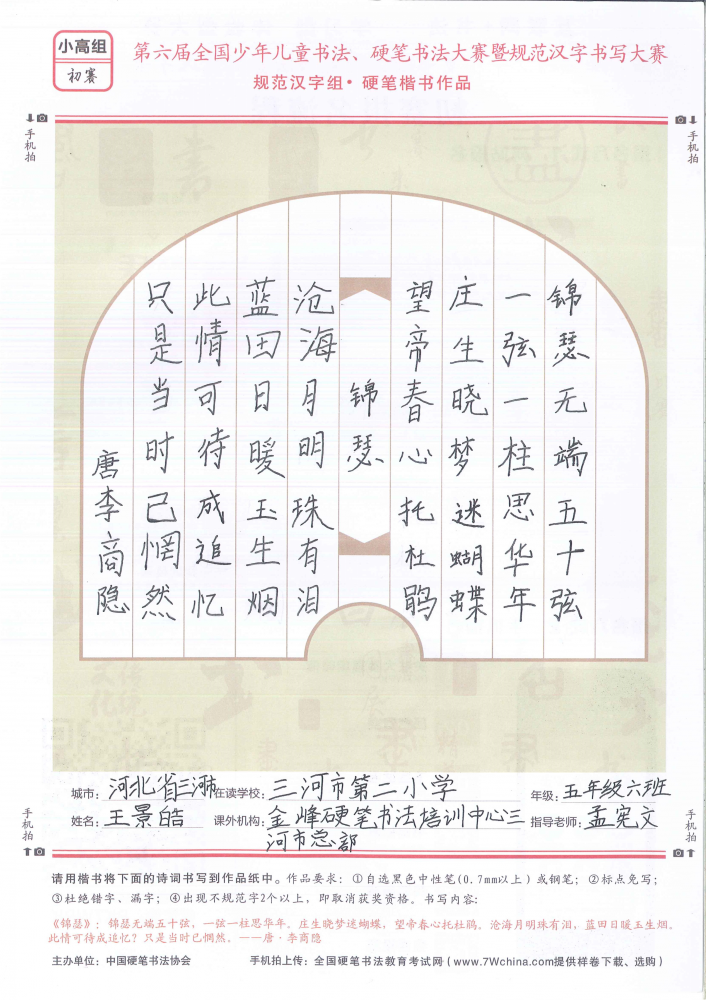 小高组
初赛
第六届全国少年儿童书法、硬笔书法大赛暨规范汉字书写大赛
规范汉字组·硬笔楷书作品
手机拍
手机拍
锦瑟无端五十弦
一弦一柱思华年
庄生晓梦迷蝴蝶
望帝春心托杜鹃
锦瑟
沧海月明珠有泪
蓝田日暖玉生烟
此情可待成追忆
只是当时已惘然
唐李商隐
城市：河北省三河市 在读学校：三河市第二小学 年级：五年级六班
姓名：王景皓 课外机构：金峰硬笔书法培训中心三河市总部 指导老师：孟宪文
手机拍
手机拍
请用楷书将下面的诗词书写到作品纸中。作品要求：①自选黑色中性笔(0.7mm以上）或钢笔；②标点免写；
③杜绝错字、漏字；④出现不规范字2个以上，即取消获奖资格。书写内容：
《锦瑟》：锦瑟无端五十弦，一弦一柱思华年。庄生晓梦迷蝴蝶，望帝春心托杜鹃。沧海月明珠有泪，蓝田日暖玉生烟。
此情可待成追忆？只是当时已惘然。——唐·李商隐
主办单位：中国硬笔书法协会 手机拍上传：全国硬笔书法教育考试网（www.7Wchina.com提供样卷下载、选购）